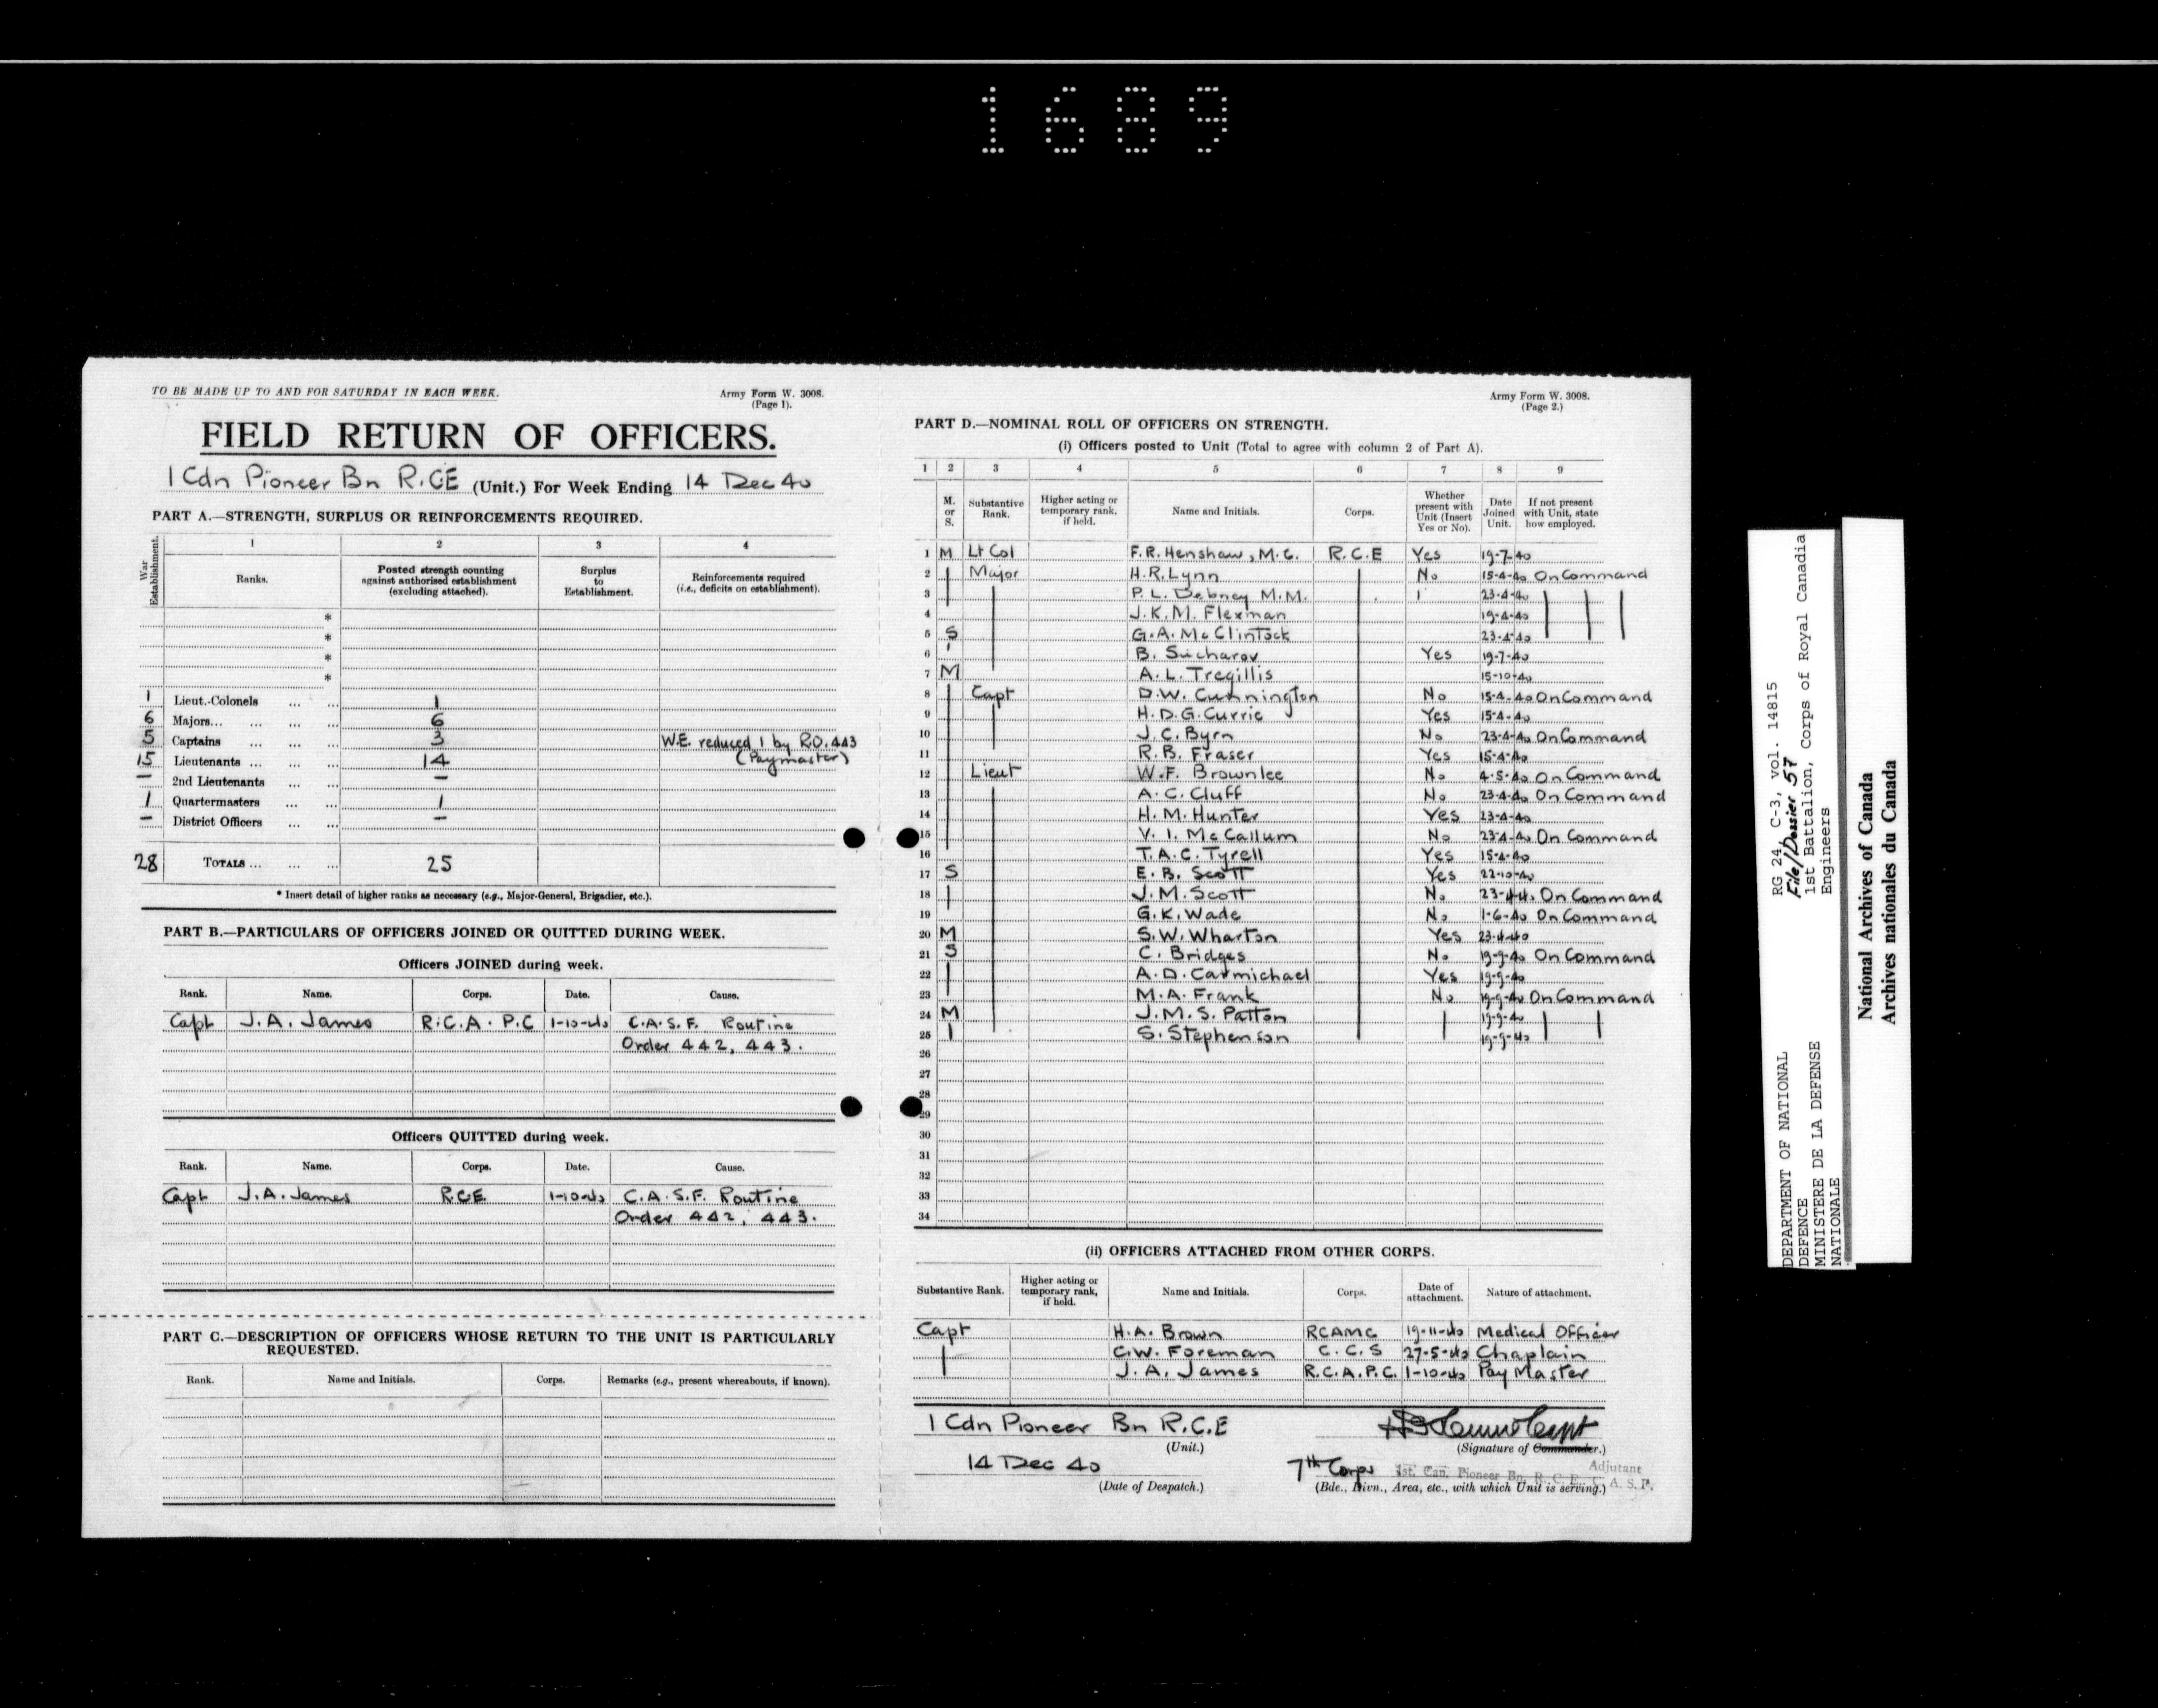 1689
TO BE MADE UP TO AND FOR SATURDAY IN EACH WEEK.
Army Form W. 3008.
(Page 1).
FIELD RETURN OF OFFICERS.
1 Cdn Pioneer Bn R.C.E (Unit.) For Week Ending 14 Dec 40
PART A.—STRENGTH, SURPLUS OR REINFORCEMENTS REQUIRED.
War Establishment.
1 2 3 4
Ranks.
Posted strength counting against authorised establishment (excluding attached).
Surplus to Establishment.
Reinforcements required (i.e., deficits on establishment).
*
*
*
*
1 Lieut.-Colonels ... ... 1
6 Majors... ... ... ... 6
5 Captains ... ... ... 3 W.E. reduced 1 by R.O. 443
15 Lieutenants ... ... ... 14 (Paymaster)
— 2nd Lieutenants ... ... —
1 Quartermasters ... ... 1
— District Officers ... ... —
28 TOTALS ... ... ... 25
* Insert detail of higher ranks as necessary (e.g., Major-General, Brigadier, etc.).
PART B.—PARTICULARS OF OFFICERS JOINED OR QUITTED DURING WEEK.
Officers JOINED during week.
Rank. Name. Corps. Date. Cause.
Capt J.A. James R.C.A.P.C 1-10-40 C.A.S.F. Routine
Order 442, 443.
Officers QUITTED during week.
Rank. Name. Corps. Date. Cause.
Capt J.A. James R.C.E. 1-10-40 C.A.S.F. Routine
Order 442, 443.
PART C.—DESCRIPTION OF OFFICERS WHOSE RETURN TO THE UNIT IS PARTICULARLY
REQUESTED.
Rank. Name and Initials. Corps. Remarks (e.g., present whereabouts, if known).
Army Form W. 3008.
(Page 2.)
PART D.—NOMINAL ROLL OF OFFICERS ON STRENGTH.
(i) Officers posted to Unit (Total to agree with column 2 of Part A).
1 2 3 4 5 6 7 8 9
M. or S.
Substantive Rank.
Higher acting or temporary rank, if held.
Name and Initials.
Corps.
Whether present with Unit (Insert Yes or No).
Date Joined Unit.
If not present with Unit, state how employed.
1 M Lt Col F.R. Henshaw, M.C. R.C.E Yes 19-7-40
2 Major H.R. Lynn No 15-4-40 On Command
3 P.L. Debney M.M. 23-4-40
4 J.K.M. Flexman 19-4-40
5 S G.A. McClintock 23-4-40
6 B. Sucharov Yes 19-7-40
7 M A.L. Tregillis 15-10-40
8 Capt D.W. Cunnington No 15-4-40 On Command
9 H.D.G. Currie Yes 15-4-40
10 J.C. Byrn No 23-4-40 On Command
11 R.B. Fraser Yes 15-4-40
12 Lieut W.F. Brownlee No 4-5-40 On Command
13 A.C. Cluff No 23-4-40 On Command
14 H.M. Hunter Yes 23-4-40
15 V.I. McCallum No 23-4-40 On Command
16 T.A.C. Tyrell Yes 15-4-40
17 S E.B. Scott Yes 22-10-40
18 J.M. Scott No 23-4-40 On Command
19 G.K. Wade No 1-6-40 On Command
20 M S.W. Wharton Yes 23-4-40
21 S C. Bridges No 19-9-40 On Command
22 A.D. Carmichael Yes 19-9-40
23 M.A. Frank No 19-9-40 On Command
24 M J.M.S. Patton 19-9-40
25 S. Stephenson 19-9-40
26
27
28
29
30
31
32
33
34
(ii) OFFICERS ATTACHED FROM OTHER CORPS.
Substantive Rank. Higher acting or temporary rank, if held. Name and Initials. Corps. Date of attachment. Nature of attachment.
Capt H.A. Brown RCAMC 19-11-40 Medical Officer
C.W. Foreman C.C.S 27-5-40 Chaplain
J.A. James R.C.A.P.C. 1-10-40 Pay Master
1 Cdn Pioneer Bn R.C.E
(Unit.)
Capt
(Signature of Commander.)
14 Dec 40
(Date of Despatch.)
7th Corps
Adjutant
1st. Can. Pioneer Bn. R. C. E., C. A. S. F.
(Bde., Divn., Area, etc., with which Unit is serving.)
DEPARTMENT OF NATIONAL DEFENCE
MINISTERE DE LA DEFENSE NATIONALE
RG 24, C-3, vol. 14815
File/Dossier 57
1st Battalion, Corps of Royal Canadia
Engineers
National Archives of Canada
Archives nationales du Canada